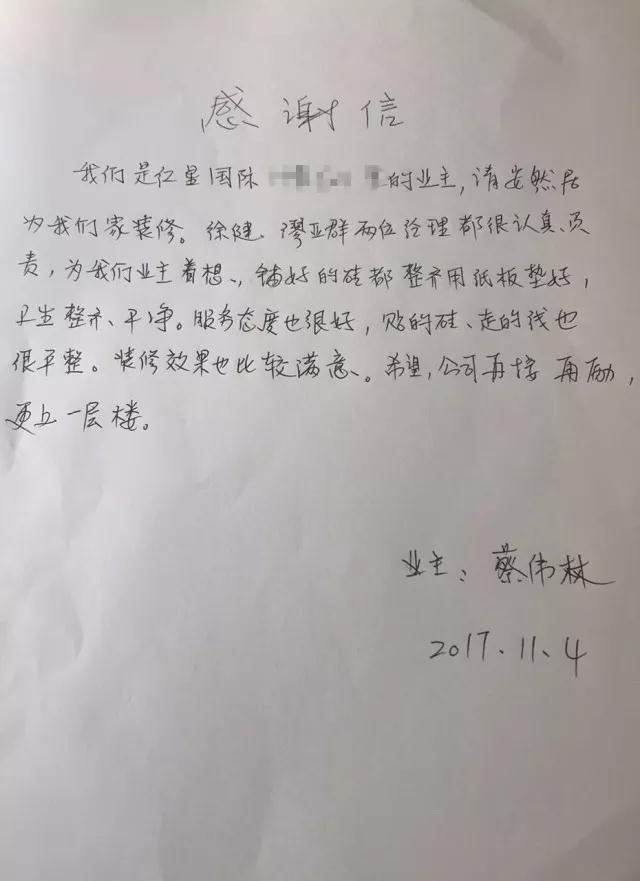 感谢信
我们是红星国际的业主,请安然居
为我们家装修。徐健、缪亚群两位经理都很认真、负
责,为我们业主着想、,铺好的砖都整齐用纸板垫好,
卫生整齐、干净。服务态度也很好,贴的砖、走的线也
很平整。装修效果也比较满意、。希望,公司再接再励,
更上一层楼。
业主:蔡伟林
2017、11、4